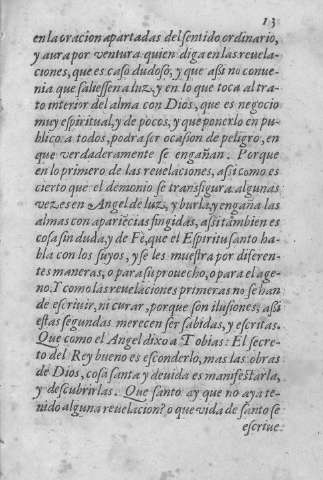 13
en la oracion apartadas del sentido ordinario,
y aura por ventura quien diga en las reuela-
ciones, que es caso dudoso, y que assi no conue-
nia que saliessen a luz, y en lo que toca al tra-
to interior del alma con Dios, que es negocio
muy espiritual, y de pocos, y que ponerlo en pu-
blico a todos, podra ser ocasion de peligro, en
que verdaderamente se engañan. Porque
en lo primero de las reuelaciones, assi como es
cierto que el demonio se transfigura algunas
vezes en Angel de luz, y burla, y engaña las
almas con apariēcias fingidas, assi tambien es
cosa sin duda, y de Fè, que el Espiritu santo ha-
bla con los suyos, y se les muestra por diferen-
tes maneras, o para su prouecho, o para el age-
no. Y como las reuelaciones primeras no se han
de escriuir, ni curar, porque son ilusiones, assi
estas segundas merecen ser sabidas, y escritas.
Que como el Angel dixo a Tobias: El secre-
to del Rey bueno es esconderlo, mas las obras
de Dios, cosa santa y deuida es manifestarla,
y descubrirlas. Que santo ay que no aya te-
nido alguna reuelacion? o que vida de santo se
escriue